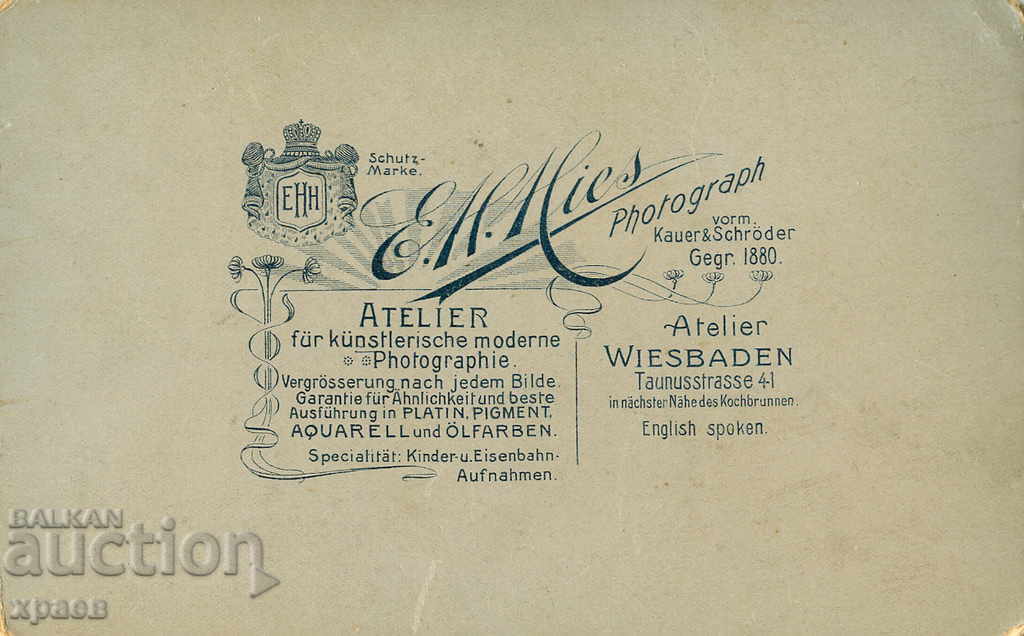 Schutz-
Marke.
EHH
E.H. Mies
Photograph
vorm.
Kauer & Schröder
Gegr. 1880.
ATELIER
für künstlerische moderne
Photographie.
Vergrösserung nach jedem Bilde.
Garantie für Ähnlichkeit und beste
Ausführung in PLATIN, PIGMENT,
AQUARELL und ÖLFARBEN.
Specialität: Kinder- u. Eisenbahn-
Aufnahmen.
Atelier
WIESBADEN
Taunusstrasse 41
in nächster Nähe des Kochbrunnen.
English spoken.
BALKAN
auction
храев